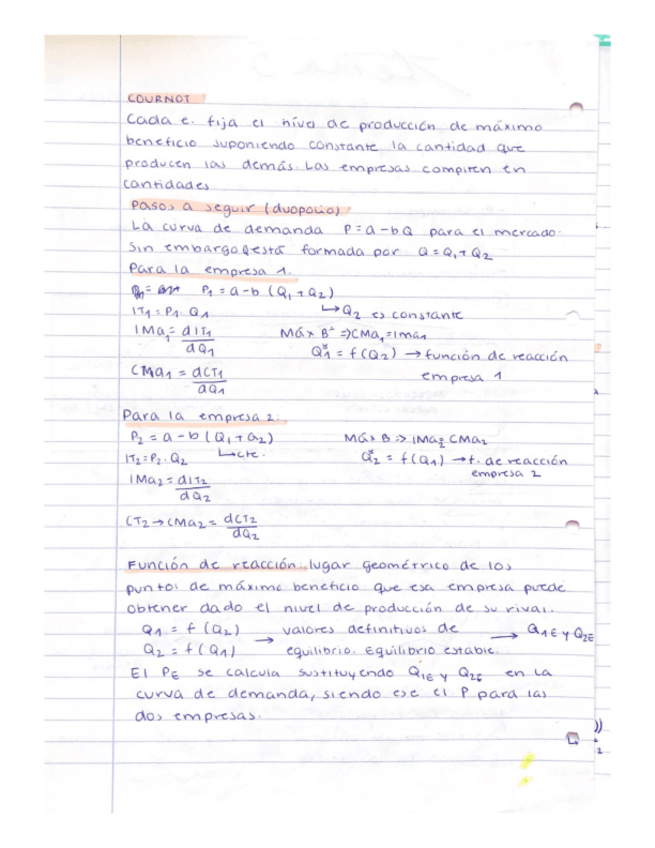 COURNOT
Cada e. fija el nivel de producción de máximo
beneficio suponiendo constante la cantidad que
producen las demás. Las empresas compiten en
cantidades
Pasos a seguir (duopolio)
La curva de demanda P = a - bQ para el mercado.
Sin embargo Q está formada por Q = Q₁ + Q₂
Para la empresa 1.
P₁ = a - b (Q₁ + Q₂)
IT₁ = P₁ · Q₁ ↳ Q₂ es constante
IMa₁ = dIT₁/dQ₁ Máx Bº => CMa₁ = Ima₁
Q₁* = f(Q₂) → función de reacción
CMa₁ = dCT₁/dQ₁ empresa 1
Para la empresa 2:
P₂ = a - b (Q₁ + Q₂) Máx B => IMa₂ = CMa₂
IT₂ = P₂ · Q₂ ↳ cte. Q₂* = f(Q₁) → f. de reacción
empresa 2
IMa₂ = dIT₂/dQ₂
CT₂ → CMa₂ = dCT₂/dQ₂
Función de reacción: lugar geométrico de los
puntos de máximo beneficio que esa empresa puede
obtener dado el nivel de producción de su rival.
Q₁ = f(Q₂) → valores definitivos de → Q₁E y Q₂E
Q₂ = f(Q₁) equilibrio. Equilibrio estable.
El PE se calcula sustituyendo Q₁E y Q₂E en la
curva de demanda, siendo ese el P para las
dos empresas.